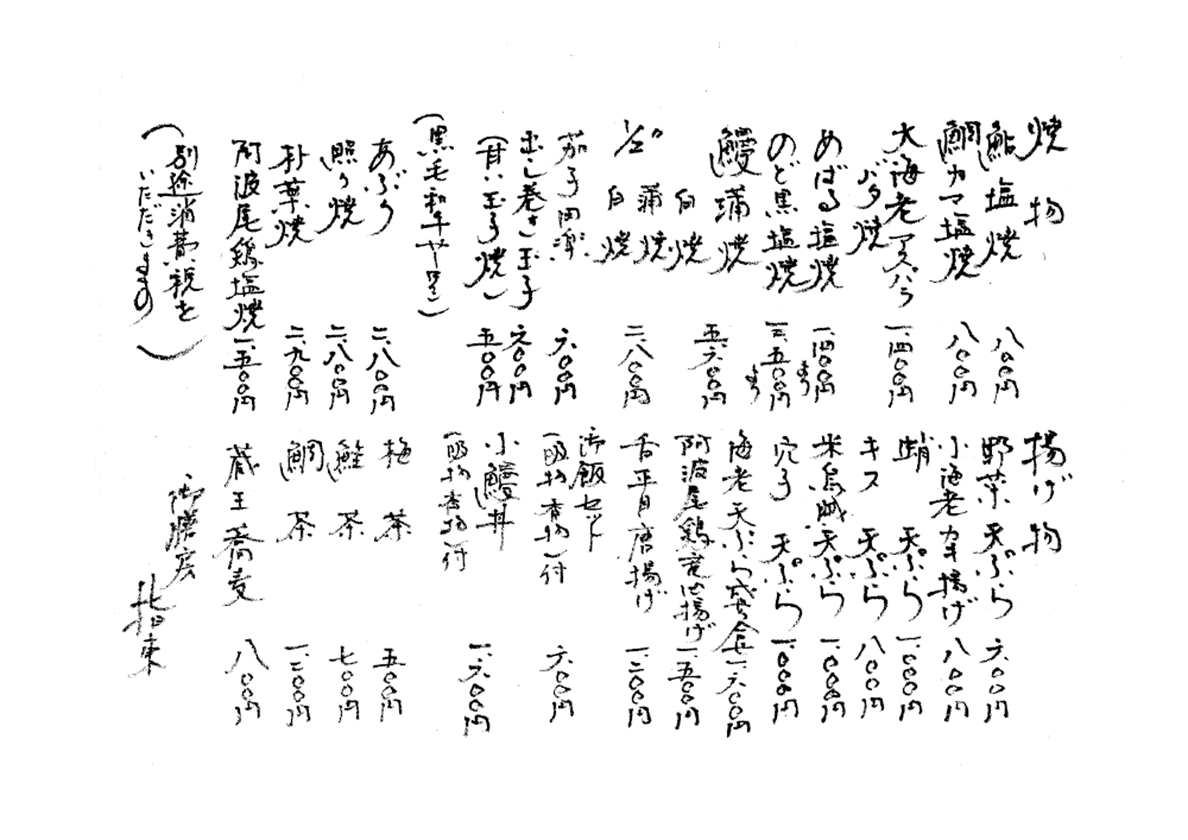 焼物
鮎塩焼 八〇〇円
鯛カマ塩焼 八〇〇円
大海老アスパラ
バタ焼 一、四〇〇円
めばる塩焼 一、四〇〇円より
のど黒塩焼 三、五〇〇円より
鰻蒲焼 五、六〇〇円
白焼
1/2 蒲焼
白焼 二、八〇〇円
茄子田楽 六〇〇円
出し巻き玉子 六〇〇円
(甘い玉子焼) 五〇〇円
(黒毛和牛サーロイン)
あぶり 二、八〇〇円
照り焼 二、八〇〇円
朴葉焼 二、九〇〇円
阿波尾鶏塩焼 一、五〇〇円
(別途消費税を
いただきます)
揚げ物
野菜天ぷら 六〇〇円
小海老カキ揚げ 八〇〇円
蛸天ぷら 一、〇〇〇円
キス天ぷら 八〇〇円
米烏賊天ぷら 一、〇〇〇円
穴子天ぷら 一、〇〇〇円
海老天ぷら盛合 一、六〇〇円
阿波尾鶏竜田揚げ 一、五〇〇円
舌平目唐揚げ 一、二〇〇円
御飯セット
一吸物香物付 六〇〇円
小鰻丼
一吸物香物付 一、六〇〇円
梅茶 五〇〇円
鮭茶 七〇〇円
鯛茶 一、二〇〇円
蔵王蕎麦 八〇〇円
御膳房